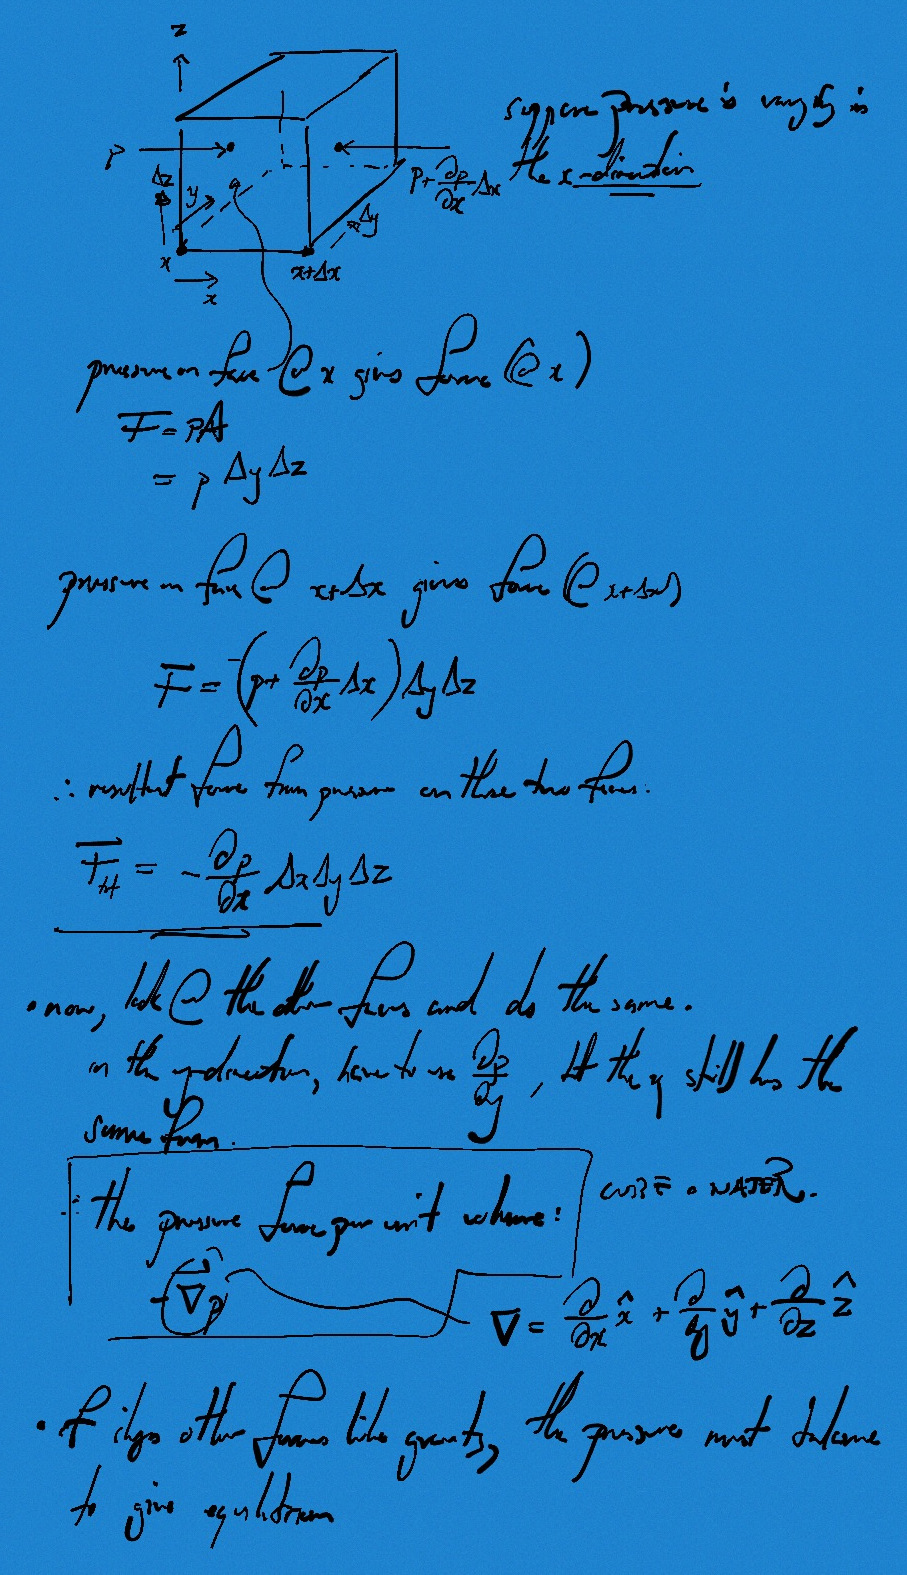 z
suppose pressure is varying in
the x-direction
p
p + ∂p/∂x Δx
Δz
y
Δy
x
x+Δx
x
pressure on face @ x gives force (@ x)
F = pA
= p Δy Δz
pressure on face @ x+Δx gives force (@ x+Δx)
F = -(p + ∂p/∂x Δx) Δy Δz
∴ resultant force from pressure on these two faces.
F_tot = - ∂p/∂x Δx Δy Δz
• now, look @ the other faces and do the same.
in the y-direction, have to use ∂p/∂y, but the y still has the
same form.
∴ the pressure force per unit volume:
WATER.
-∇p
∇ = ∂/∂x x̂ + ∂/∂y ŷ + ∂/∂z ẑ
• If other forces like gravity, the pressure must balance
to give equilibrium